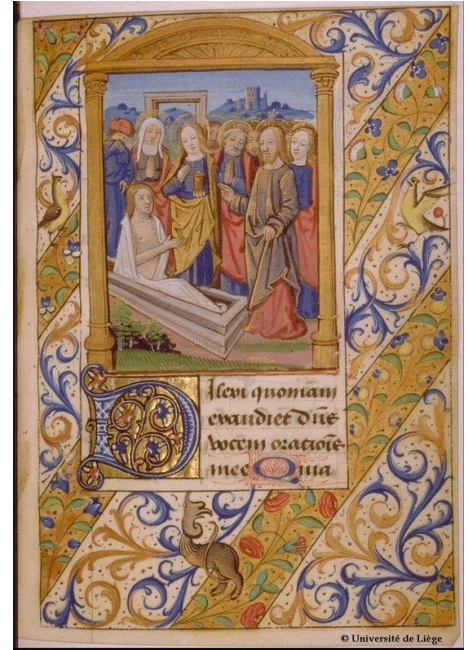 Dilexi quoniam
exaudiet dn̄s
vocem oracio̅is
mee Quia
© Université de Liège